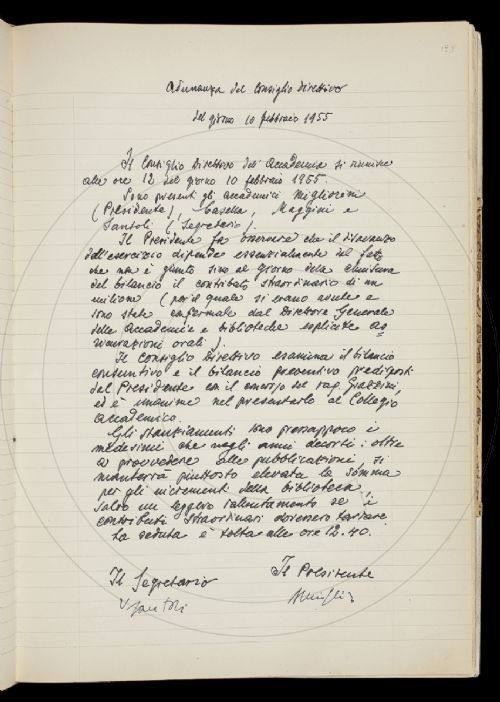 159
Adunanza del Consiglio Direttivo
del giorno 10 febbraio 1955
Il Consiglio Direttivo dell'Accademia si riunisce
alle ore 12 del giorno 10 febbraio 1955.
Sono presenti gli accademici Migliorini
(Presidente), Casella, Maggini e
Santoli (Segretario).
Il Presidente fa osservare che il disavanzo
dell'esercizio dipende essenzialmente dal fatto
che non è giunto sino al giorno della chiusura
del bilancio il contributo straordinario di un
milione (per il quale si erano avute e
sono state confermate dal Direttore Generale
delle Accademie e biblioteche esplicite as
sicurazioni orali).
Il Consiglio Direttivo esamina il bilancio
consuntivo e il bilancio preventivo predisposti
dal Presidente con il rag. Grazzini,
ed è unanime nel presentarlo al Collegio
accademico.
Gli stanziamenti sono pressappoco i
medesimi che negli anni decorsi: oltre
a provvedere alle pubblicazioni, si
manterrà piuttosto elevata la somma
per gli incrementi della biblioteca
salvo un leggero rallentamento se i
contributi straordinari dovessero tardare.
La seduta è tolta alle ore 12.40.
Il Segretario
Il Presidente
VSantoli